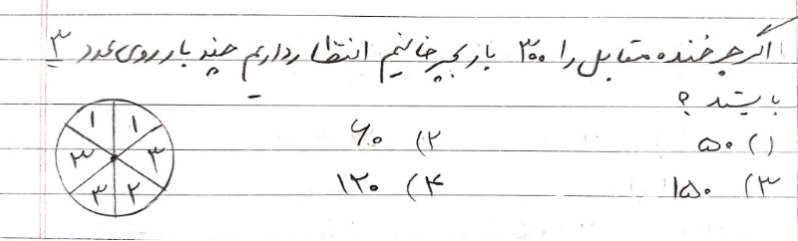 اگر چرخنده مقابل را ۳۰۰ بار بچرخانیم انتظار داریم چند بار روی عدد ۳
بایستد ؟
۱) ۵۰
۲) ۶۰
۳) ۱۵۰
۴) ۱۲۰
۱ ۱
۳ ۳
۳ ۲